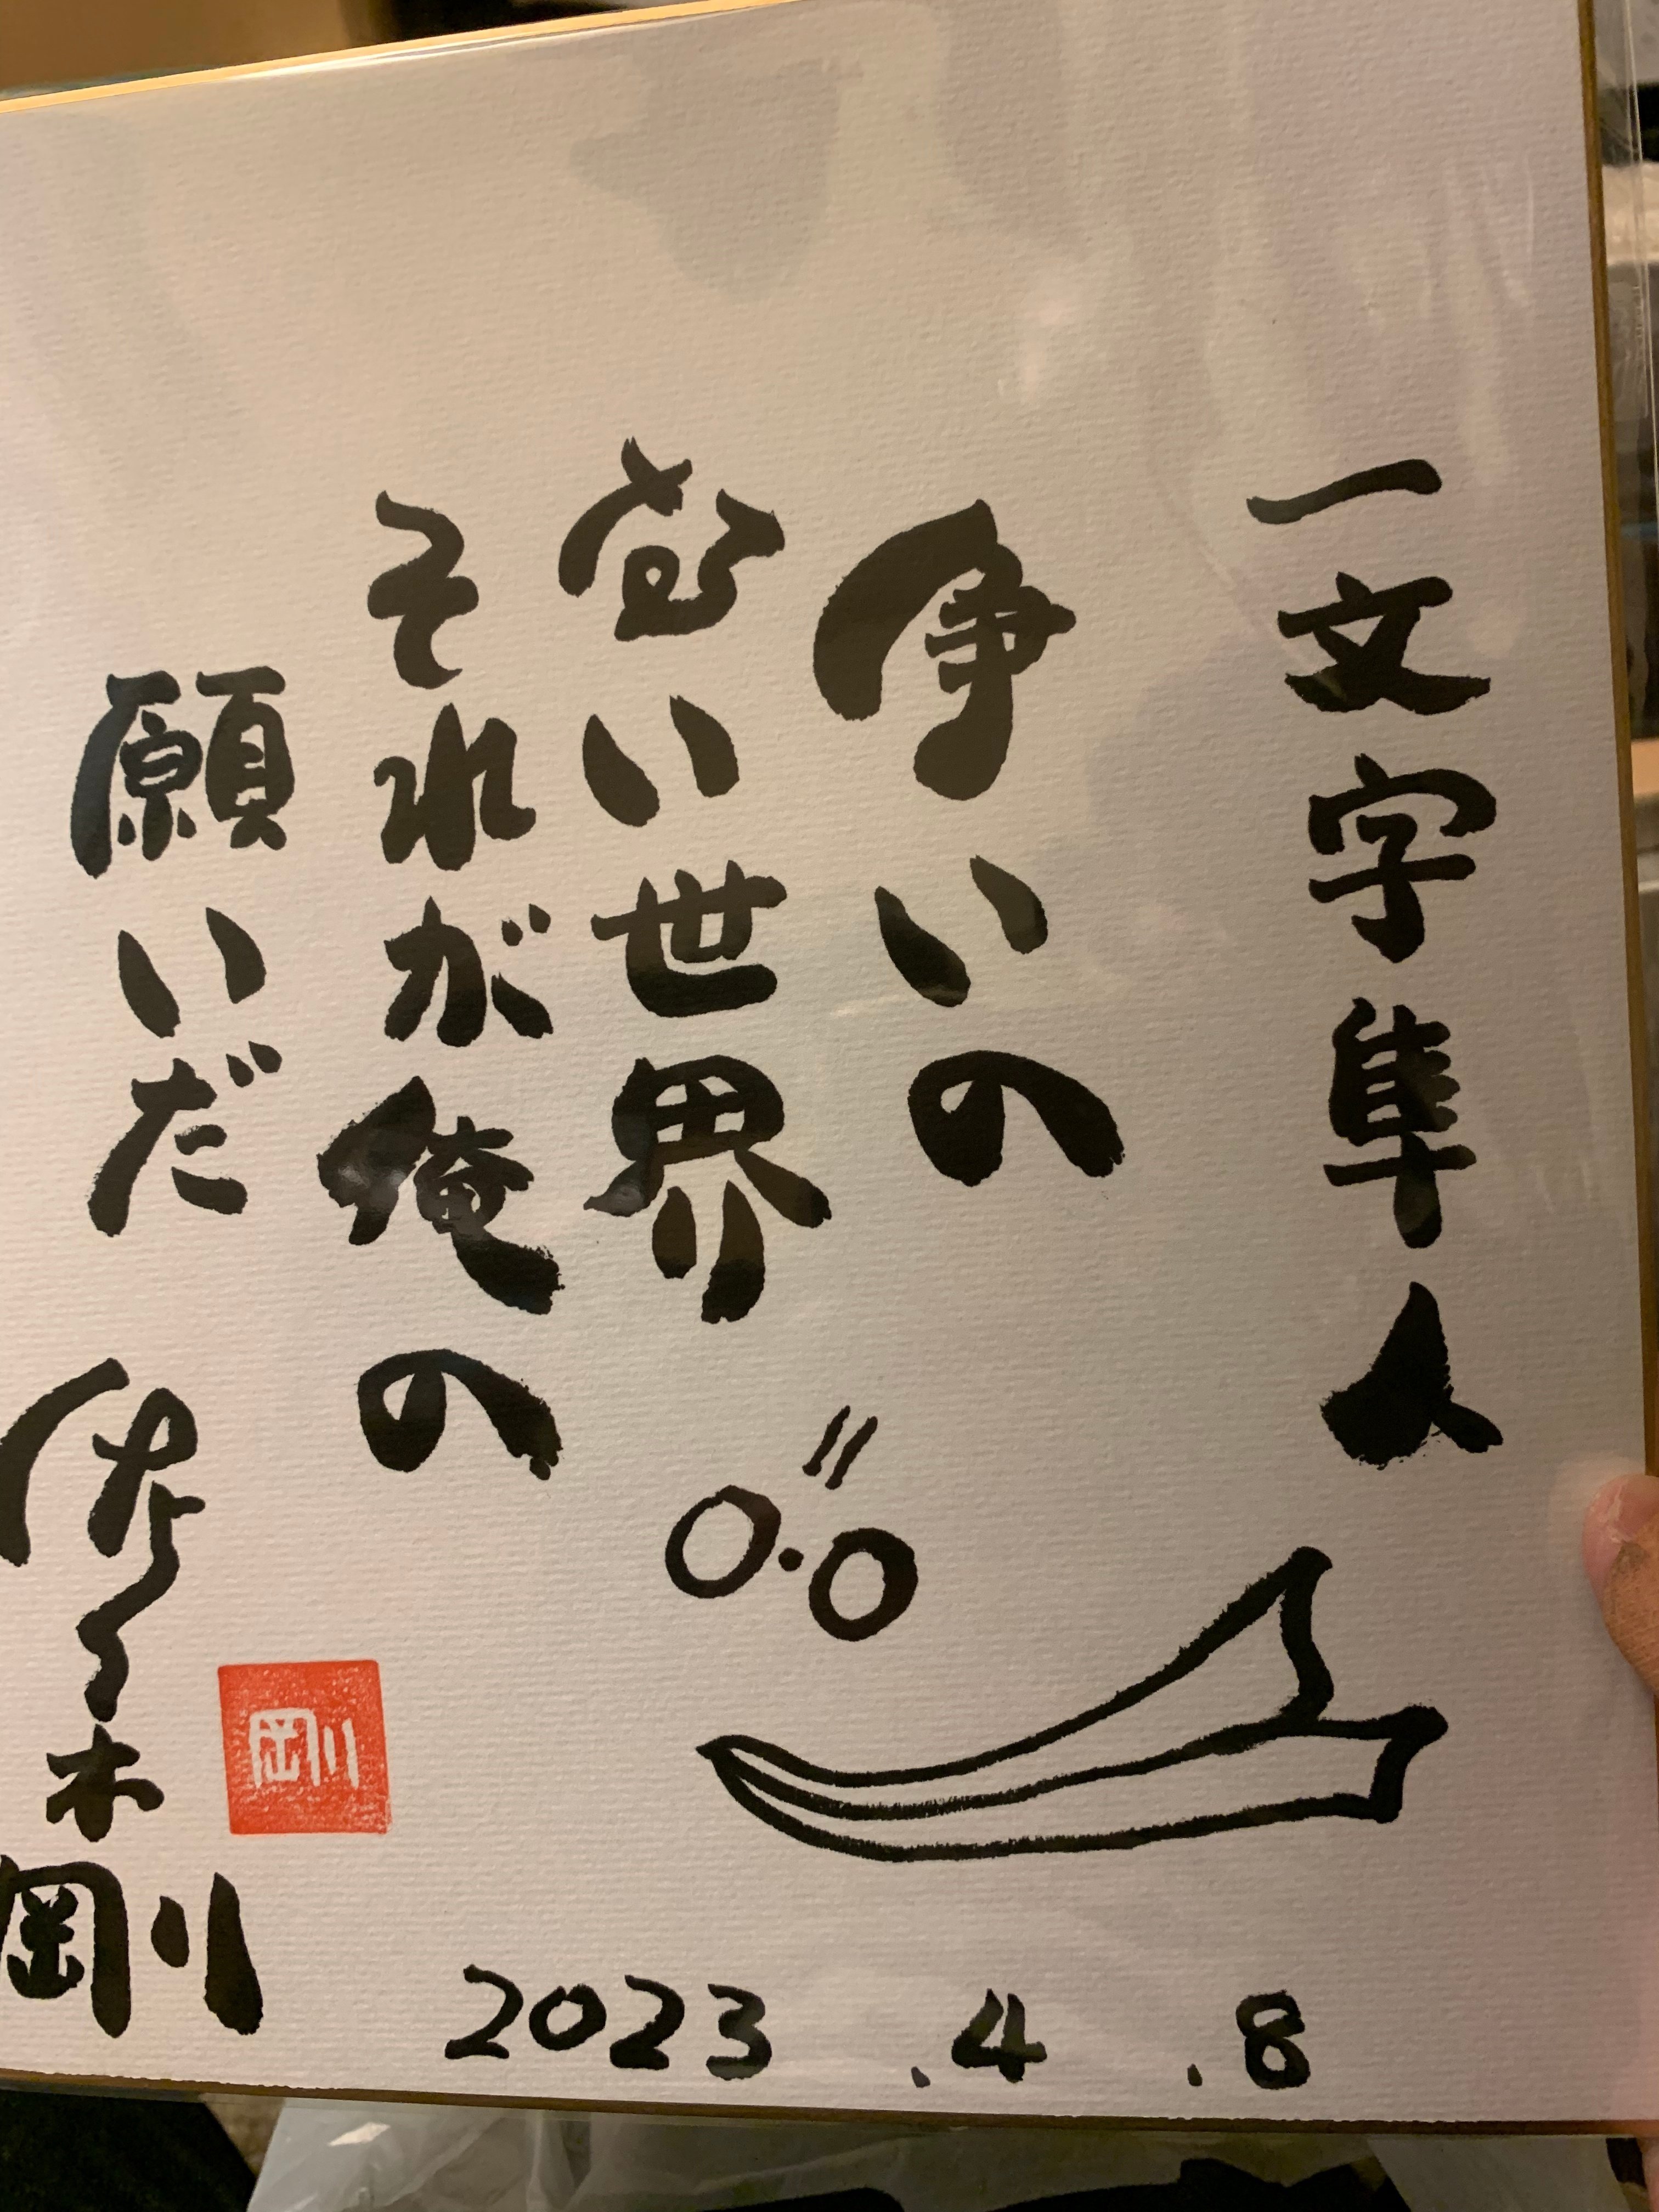 一文字隼人
争いの
ない世界
それが俺の
願いだ
佐々木剛
剛
2023.4.8